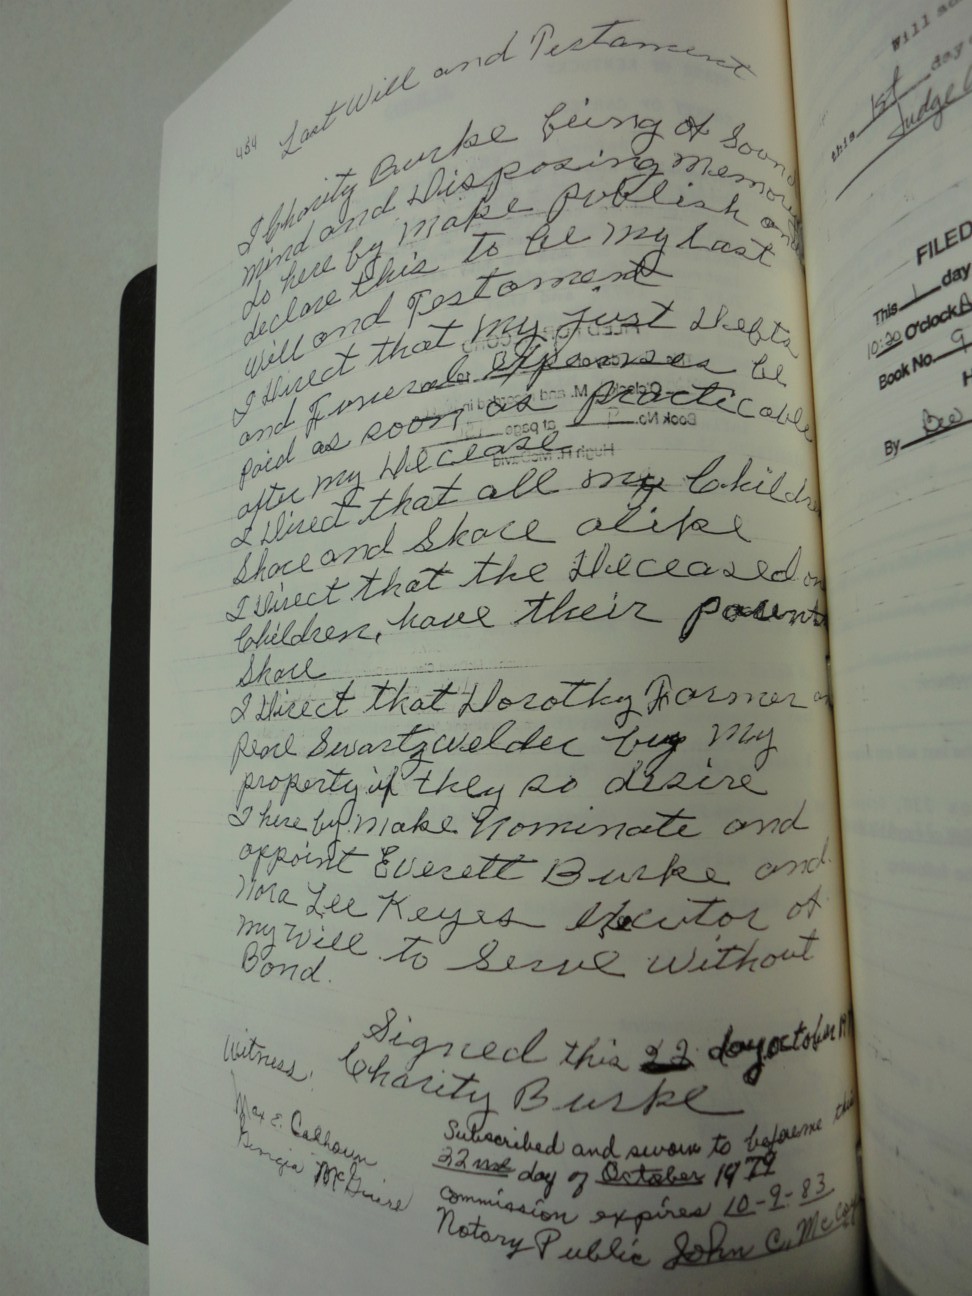 464
Last Will and Testament
I Charity Burke being of Sound
mind and Disposing memory
do here by make publish and
declare this to be my last
Will and Testament
I Direct that my just Debts
and Funeral Expenses be
paid as soon as practicable
after my Decease
I Direct that all my Childre
Share and Share alike
I Direct that the Deceased on
Children, have their parents
Share
I Direct that Dorothy Farmer an
Pearl Swartzwelder buy my
property if they so desire
I here by make Nominate and
appoint Everett Burke and
Nora Lee Keyes Executor of
my Will to Serve Without
Bond.
Signed this 22 day October 19
Witness: Charity Burke
Max E. Calhoun
Georgia McGuire
Subscribed and sworn to before me this
22nd day of October 1979
commission expires 10-9-83
Notary Public John C. Mc
Will
this 1st day
Judge
FILED
This 1 day
10:30 O'clock A
Book No. 9
H
By